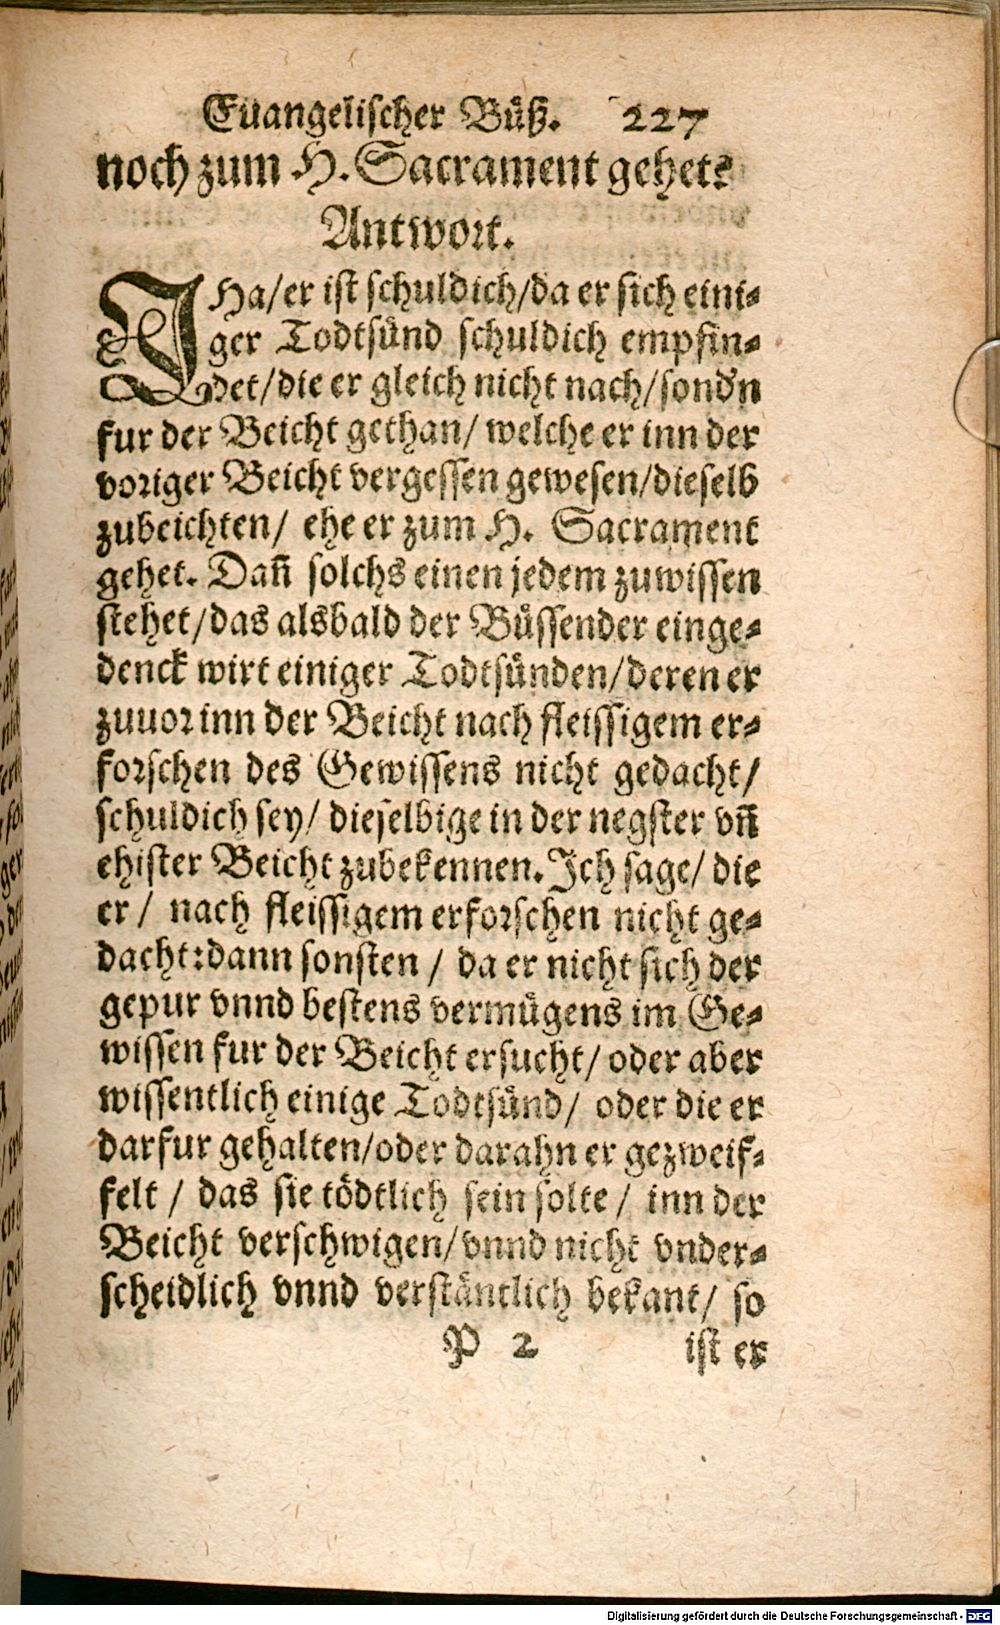 Euangelischer Büß. 227
noch zum H. Sacrament gehet?
Antwort.
JHa/er ist schuldich/da er sich eini-
ger Todtsünd schuldich empfin-
det/die er gleich nicht nach/sond'n
fur der Beicht gethan/ welche er inn der
voriger Beicht vergessen gewesen/dieselb
zubeichten/ ehe er zum H. Sacrament
gehet. Dañ solchs einen jedem zuwissen
stehet/das alsbald der Büssender einge-
denck wirt einiger Todtsünden/deren er
zuuor inn der Beicht nach fleissigem er-
forschen des Gewissens nicht gedacht/
schuldich sey/ dieselbige in der negster vñ
ehister Beicht zubekennen. Jch sage/ die
er/ nach fleissigem erforschen nicht ge-
dacht: dann sonsten / da er nicht sich der
gepur vnnd bestens vermügens im Ge-
wissen fur der Beicht ersucht/ oder aber
wissentlich einige Todtsünd/ oder die er
darfur gehalten/oder darahn er gezweif-
felt / das sie tödtlich sein solte/ inn der
Beicht verschwigen/vnnd nicht vnder-
scheidlich vnnd verständtlich bekant/ so
P 2 ist er
Digitalisierung gefördert durch die Deutsche Forschungsgemeinschaft - DFG